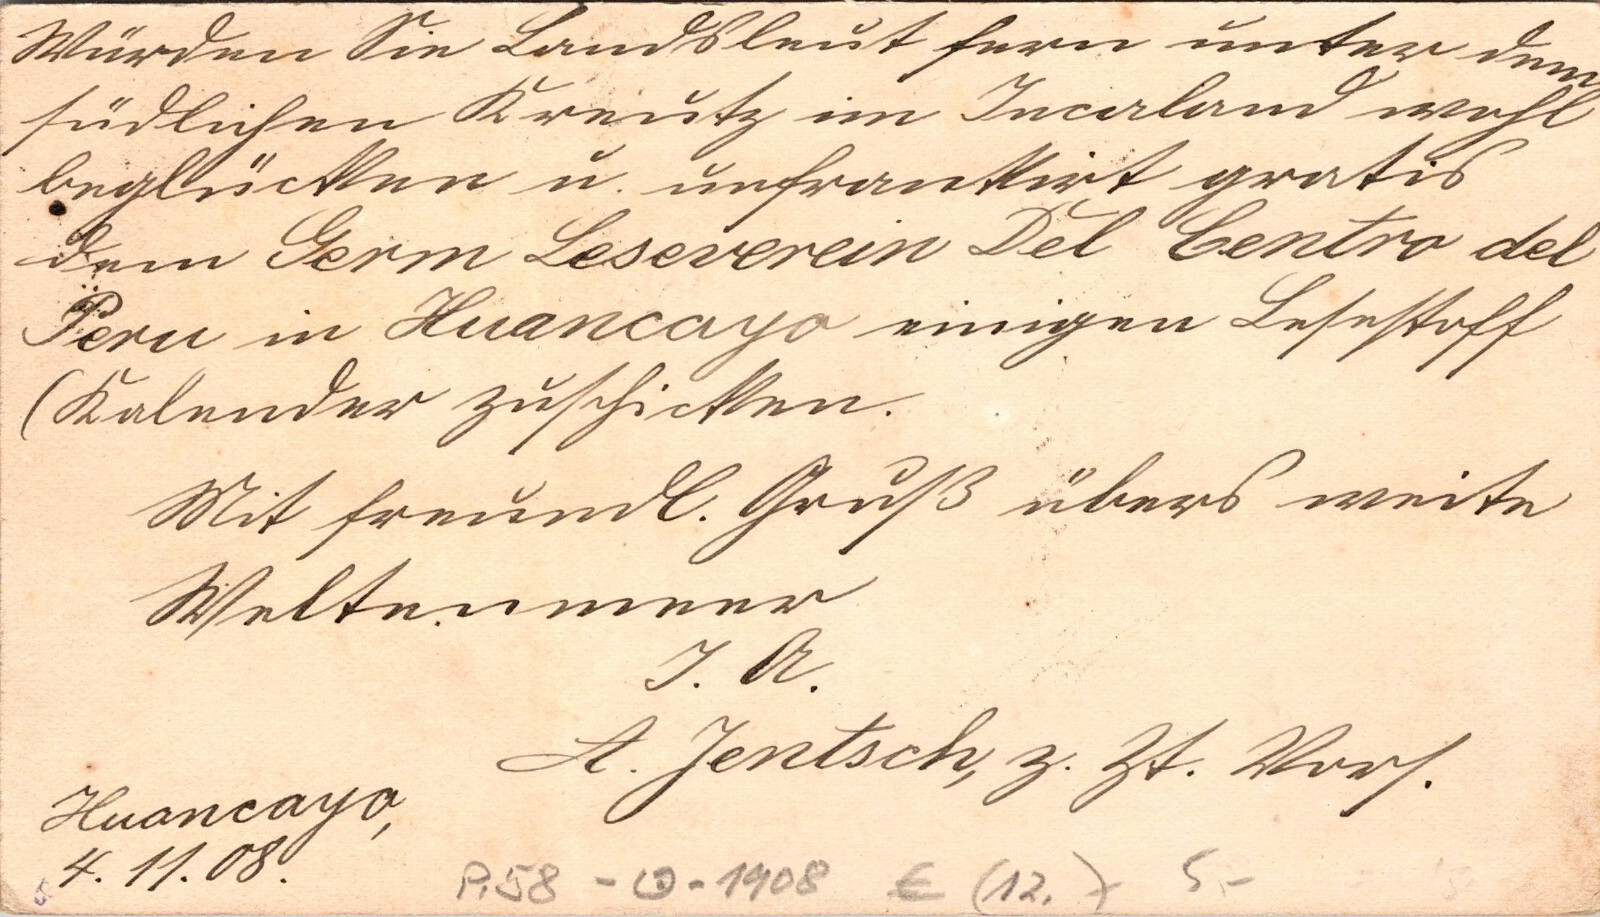 Würden Sie Landsleut fern unter dem
südlichen Kreutz im Incaland wohl
beglücken u. unfrankirt gratis
dem Germ Leseverein Del Centro del
Peru in Huancayo einigen Lesestoff
(Kalender zuschicken.
Mit freundl. Gruß übers weite
Weltenmeer
I. A.
A. Jentsch, z. Zt. Vors.
Huancayo,
4. 11. 08.
P. 58 - - 1908 € (12.) 5,-